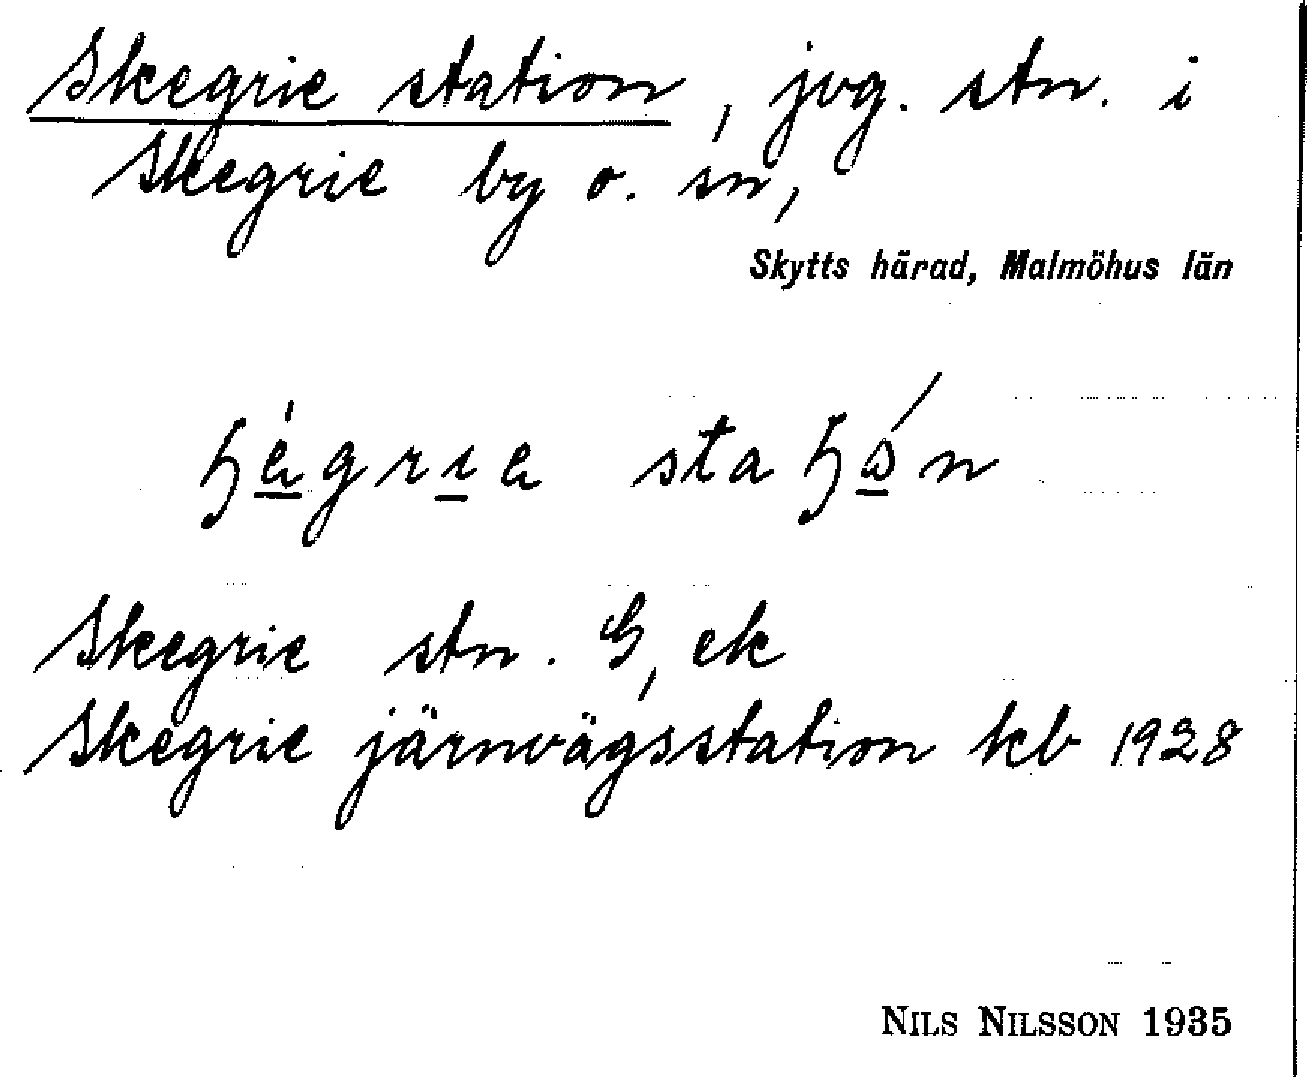 Skegrie station, jvg. stn. i
Skegrie by o. sn,
Skytts härad, Malmöhus län
Skegrie stn. G, ek
Skegrie järnvägsstation kb 1928
NILS NILSSON 1935